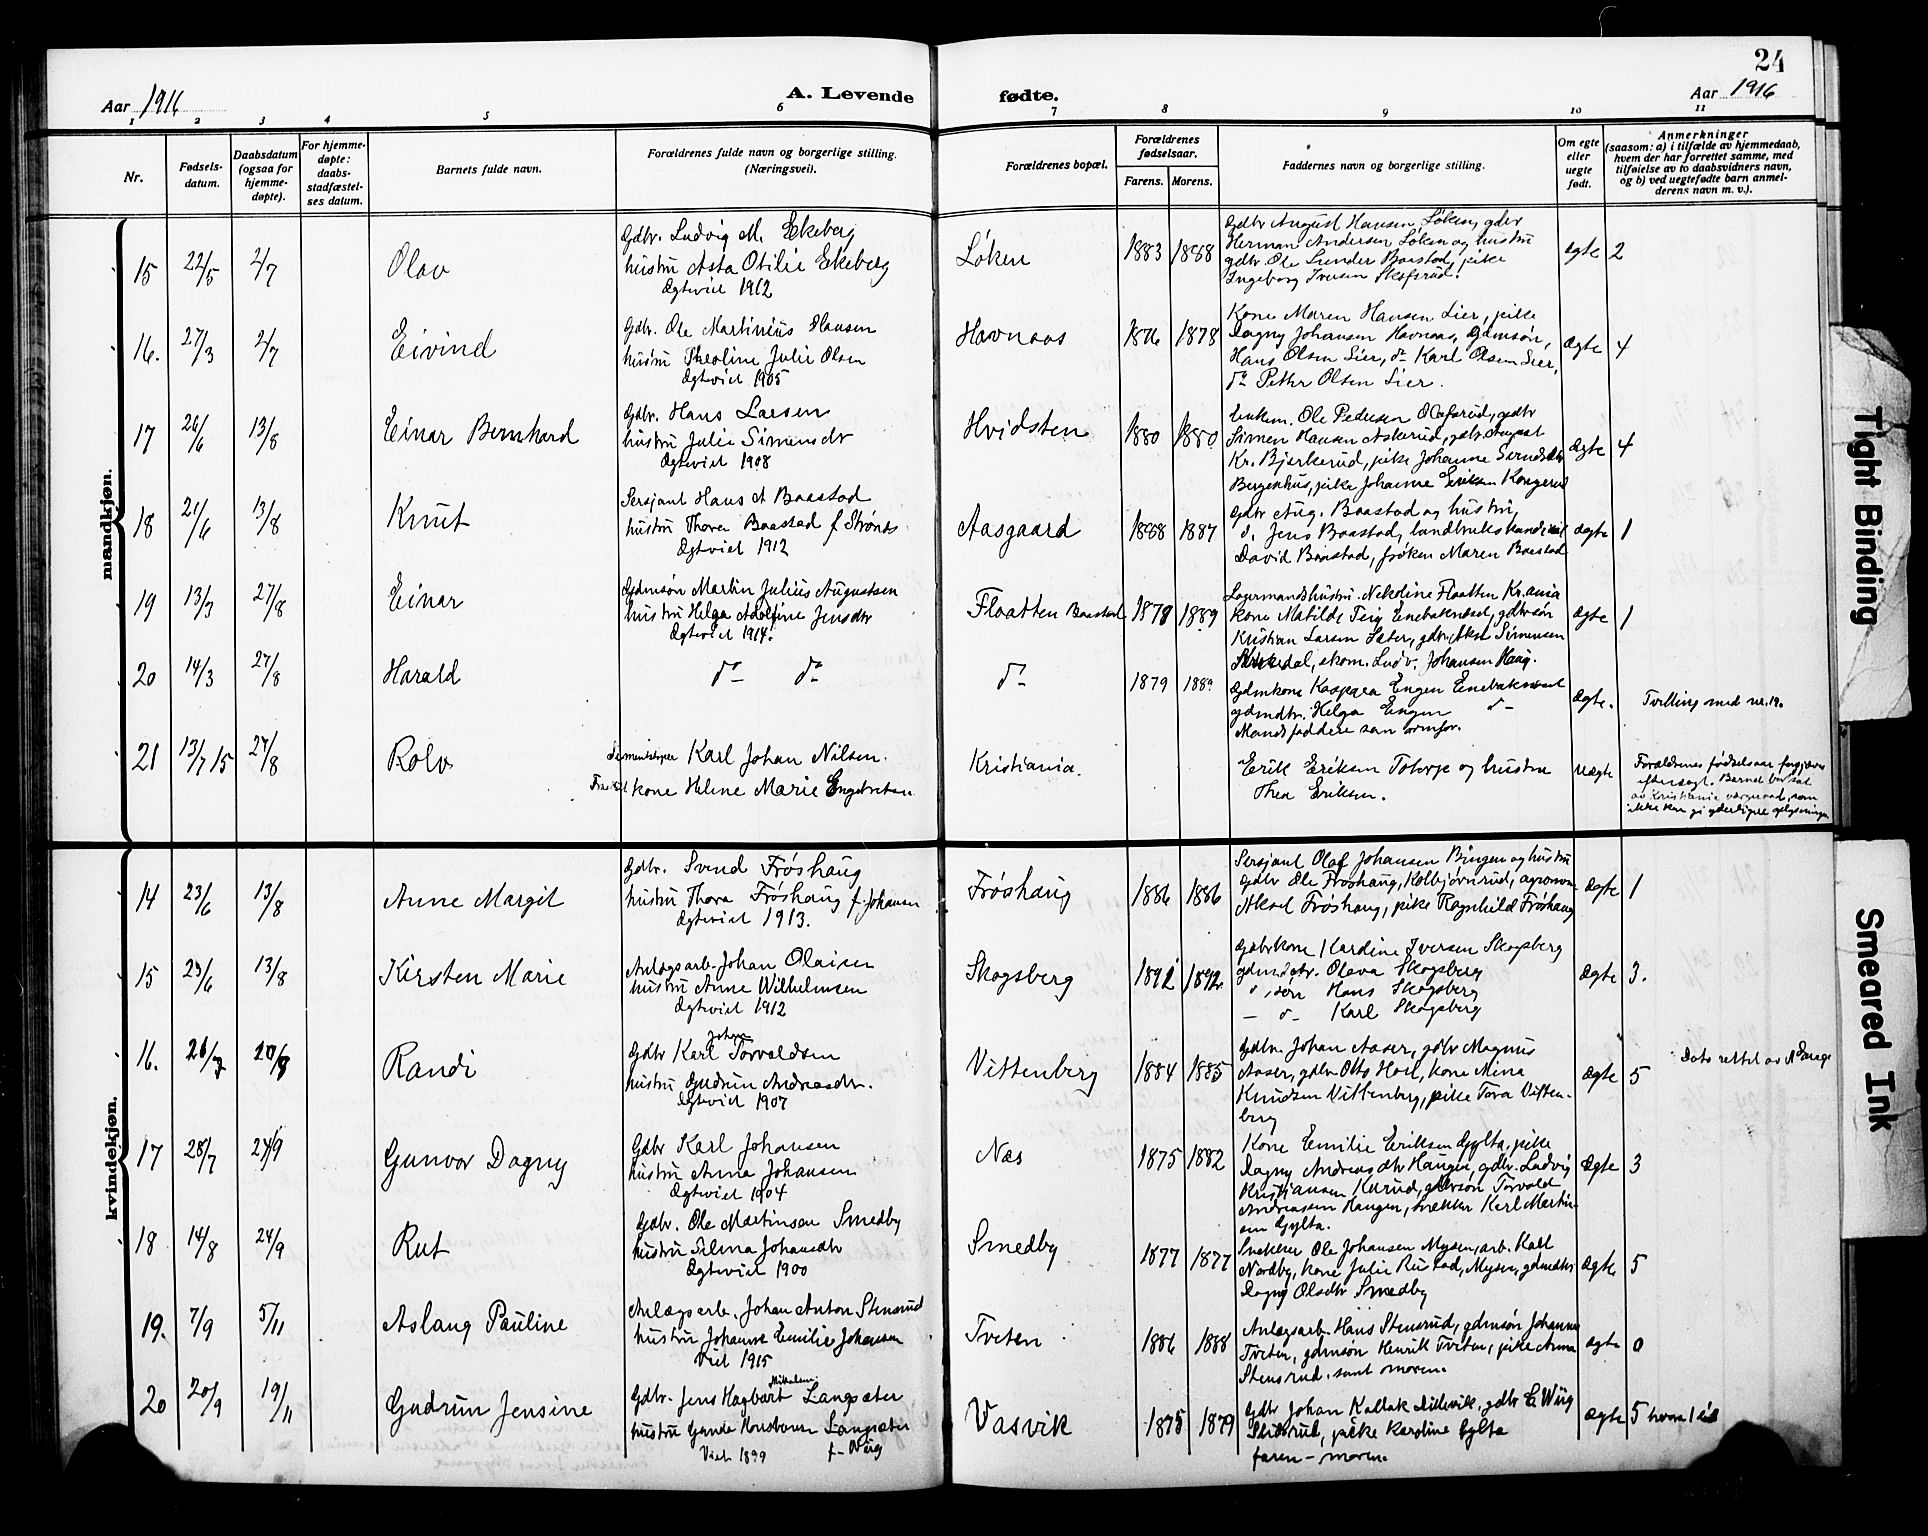 24
Aar 1916
A. Levende
fødte.
Aar 1916
1 2 3 4 5 6 7 8 9 10 11
Nr.
Fødsels-
datum.
Daabsdatum
(ogsaa for
hjemme-
døpte).
For hjemme-
døpte:
daabs-
stadfæstel-
ses datum.
Barnets fulde navn.
Forældrenes fulde navn og borgerlige stilling.
(Næringsvei).
Forældrenes bopæl.
Forældrenes
fødselsaar.
Farens. Morens.
Faddernes navn og borgerlige stilling.
Om egte
eller
uegte
født.
Anmerkninger
(saasom: a) i tilfælde av hjemmedaab,
hvem der har forrettet samme, med
tilføielse av to daabsvidners navn,
og b) ved uegtefødte barn anmel-
derens navn m. v.).
mandkjøn.
15 22/5 2/7 Olav
Gdbr. Ludvig M. Ekeberg
hustru Asta Otilie Ekeberg
Ægteviet 1912
Løken 1883 1888
Gdbr August Hansen, Løken, gdbr
Herman Andersen Løken og hustru
gdbr. Ole Sunder Baastad, pike
Ingeborg Iversen Skofsrud.
ægte 2
16. 27/3 2/7 Eivind
Gdbr. Ole Martinius Hansen
hustru Theoline Julie Olsen
Ægteviet 1905
Havnaas 1876 1878
Kone Maren Hansen Lier, pike
Dagny Johansen Havnaas, Gdmsøn,
Hans Olsen Lier, do Karl Olsen Lier,
do Petter Olsen Lier.
ægte 4
17 26/6 13/8 Einar Bernhard
Gdbr. Hans Larsen
hustru Julie Simensdr
Ægteviet 1908
Hvidsten 1880 1880
Ole Pedersen Olafsrud, gdbr
Simen Hansen Askerud, gdbr. August
Kr. Bjerkerud, pike Johanne
Bergenhus, pike Johanne Eriksen Kongerud
ægte 4
18 21/6 13/8 Knut
Sersjant Hans A Baastad
hustru Thora Baastad f. Strønes
Ægteviet 1912
Aasgaard 1888 1887
Gdbr Aug. Baastad og hustru,
d. Jens Baastad, landbrukskandidat
David Baastad, frøken Maren Baastad
ægte 1
19 13/3 27/8 Einar
Gdmsøn Martin Julius Augustsen
hustru Helga Adolfine Jensdtr
Ægteviet 1914.
Flaatten Baastad 1879 1889
Lagermandshustru. Nikoline Flaatten Kr.ania
Kone Matilde Teig Enebaknæset, gdbrsøn
Kristian Larsen Sæter, gdbr. Aksel Simensen
Kirkedal, ekom. Ludv. Johansen Haug.
ægte 1
20 14/3 27/8 Harald
do do
do 1879 1889
Gdmkone Kaspara Engen Enebaknæset
gdmdtr. Helga Engen do
Mandsfaddere som ovenfor.
ægte.
Tvilling med nr. 19.
21 13/7 15 27/8 Rolv
Karl Johan Nilsen.
kone Helene Marie Engebretsen
Kristiania.
Erik Eriksen Toverje og hustru
Thea Eriksen.
uægte
Forældrenes fødselsaar forgjæves
eftersøgt. Barnet bortsat
av Kristiania værgeraad, som
ikke kan gi yderligere oplysninger
kvindekjøn.
14 23/6 13/8 Anne Margit
Gdbr. Svend Frøshaug
hustru Thora Frøshaug f. Johansen
Ægteviet 1913.
Frøshaug 1886 1886
Sersjant Olaf Johansen Bingen og hustru
Gdbr Ole Frøshaug, Kolbjørnrud, agronom
Aksel Frøshaug, pike Ragnhild Frøshaug
ægte 1
15 29/6 13/8 Kirsten Marie
Anlægsarb. Johan Olaisen
hustru Anne Wilhelmsen
Ægteviet 1912
Skogsberg 1892 1892
Gdbrkone Kardine Iversen Skogsberg
gdmdtr. Oleva Skogsberg
do, søn Hans Skogsberg
— do Karl Skogsberg
ægte 3.
16. 26/7 20/8 Randi
Johan
Gdbr Karl Torvaldsen
hustru Gudrun Andreasdtr.
Ægteviet 1907
Vittenberg 1884 1885
Gdbr. Johan Aaser, gdbr Magnus
Aaser, gdbr Otto Hoel, kone Mina
Knudsen Vittenberg, pike Tora Vitten-
berg
ægte 5
Dato rettet av
17 28/7 24/9 Gunvor Dagny
Gdbr Karl Johansen
hustru Anna Johansen
Ægteviet 1904
Næs 1875 1882
Kone Emilie Eriksen Gylta, pike
Dagny Andreasdtr Haugen, gdbr. Ludvig
Kristiansen Kurud, gdbrsøn Torvald
Andreassen Haugen, snekker Karl Martin-
sen Gylta.
Ægte 3
18 14/8 24/9 Rut
Gdbr. Ole Martinsen Smedby
hustru Selma Johansdtr
Ægteviet 1900
Smedby 1877 1877
Snekker Ole Johansen Mysen, arb. Karl
Nordby, kone Julie Rustad, Mysen, gdmdtr
Dagny Olsdtr Smedby
Ægte 5
19. 7/9 5/11 Aslaug Pauline
Anlægsarb. Johan Anton Stensrud
hustru Johanne Emilie Johansen
Viet 1915
Tveten 1886 1888
Anlægsarb. Hans Stensrud, gdmsøn Johannes
Tveten, gdmsøn Henrik Tveten, pike Anna
Stensrud. samt moren.
ægte 0
20 20/9 19/11 Gudrun Jensine
Mikalsen
Gdbr. Jens Hagbart Langsæter
hustru Gunda Langsæter
Viet 1899 f. Wiig
Vasvik 1875 1879
Gdbr Johan Kallak Lillevik, gdbr E. Wiig
pike Karoline Gylta
faren – moren.
ægte 5 hvorav 1 død
Tight Binding
Smeared Ink